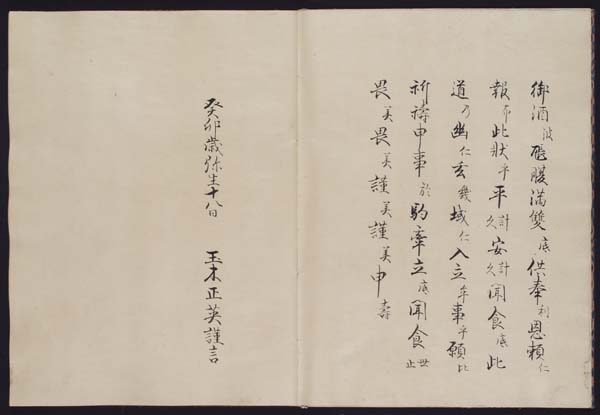 御酒波𤭖腹満雙底供奉利恩頼仁
報布此状乎平計久安計久聞食底此
道乃幽仁玄幾域仁入立牟事乎願比
祈祷申事於駒牽立底聞食世止
畏美畏美謹美謹美申壽
癸卯歳弥生十八日
玉木正英謹言